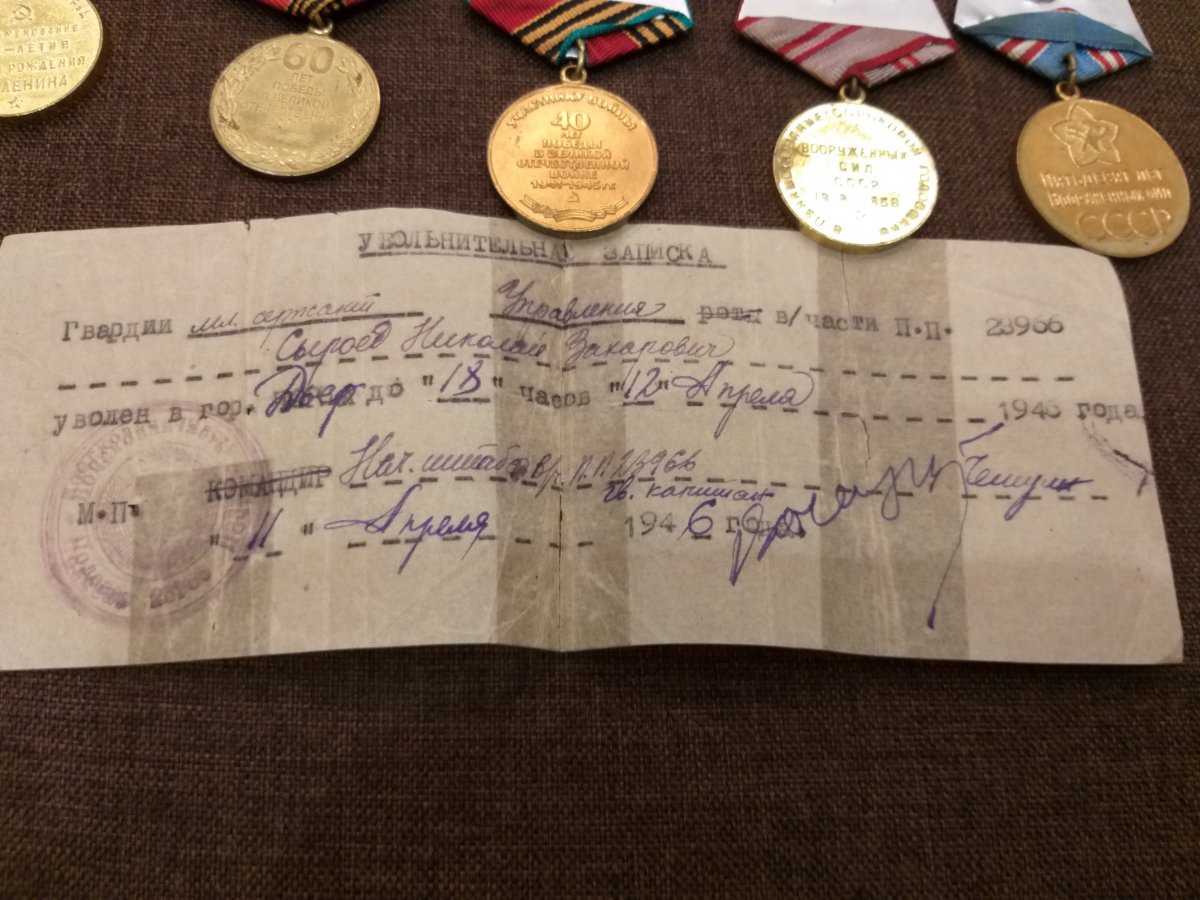 -ЛЕТИЯ
РОЖДЕНИЯ
ЛЕНИНА
60
ЛЕТ
ПОБЕДЫ
ВЕЛИКОЙ
УЧАСТНИКУ ВОЙНЫ
40
ЛЕТ
ПОБЕДЫ
В ВЕЛИКОЙ
ОТЕЧЕСТВЕННОЙ
ВОЙНЕ
1941-1945 гг
В ОЗНАМЕНОВАНИЕ СОРОКОВОЙ ГОДОВЩИНЫ
ВООРУЖЕННЫХ
СИЛ
СССР
ПЯТЬДЕСЯТ ЛЕТ
ВООРУЖЕННЫХ СИЛ
СССР
УВОЛЬНИТЕЛЬНАЯ ЗАПИСКА
Гвардии мл. сержант Управления роты в/части П.П. 23966
Сыроед Николай Захарович
уволен в гор. до "18" часов "12" Апреля 1946 года
КОМАНДИР Нач. штаба в/ч п.п 23966
гв. капитан
М.П.
"11" Апреля 1946 года.